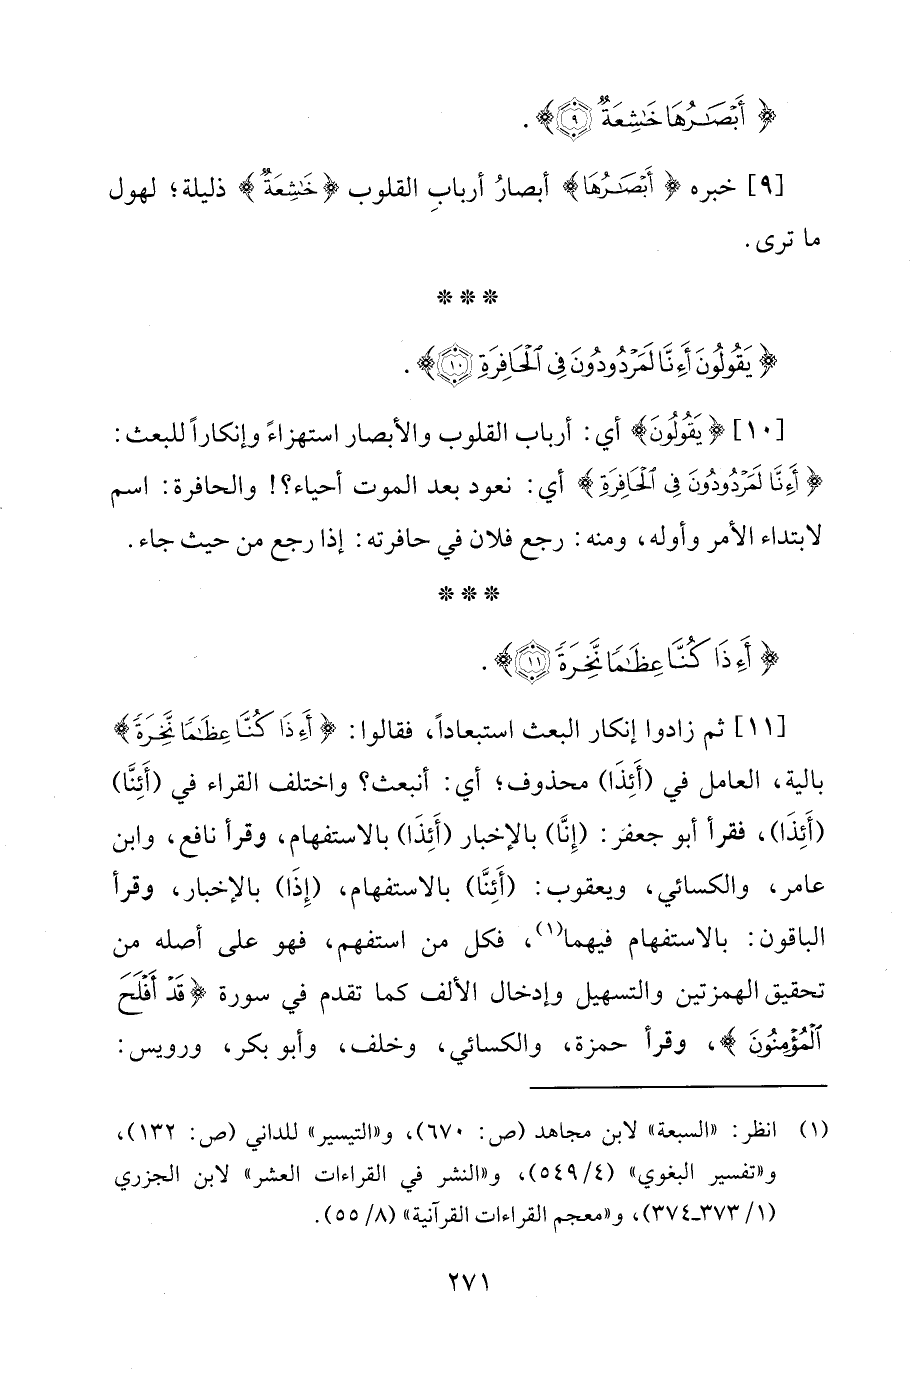 ﴿ أَبْصَٰرُهَا خَٰشِعَةٌ ۝٩ ﴾ .
[٩] خبره ﴿ أَبْصَٰرُهَا ﴾ أبصارُ أربابِ القلوب ﴿ خَٰشِعَةٌ ﴾ ذليلة؛ لهول
ما ترى .
* * *
﴿ يَقُولُونَ أَءِنَّا لَمَرْدُودُونَ فِى ٱلْحَافِرَةِ ۝١٠ ﴾ .
[١٠] ﴿ يَقُولُونَ ﴾ أي: أرباب القلوب والأبصار استهزاءً وإنكاراً للبعث:
﴿ أَءِنَّا لَمَرْدُودُونَ فِى ٱلْحَافِرَةِ ﴾ أي: نعود بعد الموت أحياء؟! والحافرة: اسم
لابتداء الأمر وأوله، ومنه: رجع فلان في حافرته: إذا رجع من حيث جاء .
* * *
﴿ أَءِذَا كُنَّا عِظَٰمًا نَّخِرَةً ۝١١ ﴾ .
[١١] ثم زادوا إنكار البعث استبعاداً، فقالوا: ﴿ أَءِذَا كُنَّا عِظَٰمًا نَّخِرَةً ﴾
بالية، العامل في (أَئِذَا) محذوف؛ أي: أنبعث؟ واختلف القراء في (أَئِنَّا)
(أَئِذَا)، فقرأ أبو جعفر: (إِنَّا) بالإخبار (أَئِذَا) بالاستفهام، وقرأ نافع، وابن
عامر، والكسائي، ويعقوب: (أَئِنَّا) بالاستفهام، (إِذَا) بالإخبار، وقرأ
الباقون: بالاستفهام فيهما(١)، فكل من استفهم، فهو على أصله من
تحقيق الهمزتين والتسهيل وإدخال الألف كما تقدم في سورة ﴿ قَدْ أَفْلَحَ
ٱلْمُؤْمِنُونَ ﴾، وقرأ حمزة، والكسائي، وخلف، وأبو بكر، ورويس:
(١) انظر: «السبعة» لابن مجاهد (ص: ٦٧٠)، و«التيسير» للداني (ص: ١٣٢)،
و«تفسير البغوي» (٤/ ٥٤٩)، و«النشر في القراءات العشر» لابن الجزري
(١/ ٣٧٣ـ٣٧٤)، و«معجم القراءات القرآنية» (٨/ ٥٥).
٢٧١